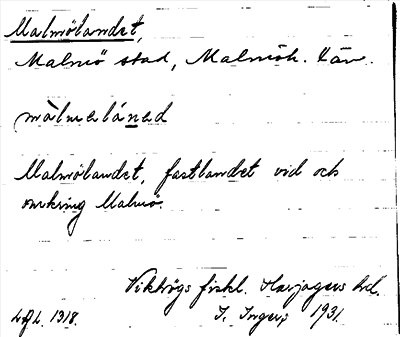 Malmölandet,
Malmö stad, Malmöh. län.
Malmölandet, fastlandet vid och
omkring Malmö.
Vikhögs fiskl. Harjagers hd.
LAL. 1318. I. Ingers 1931.